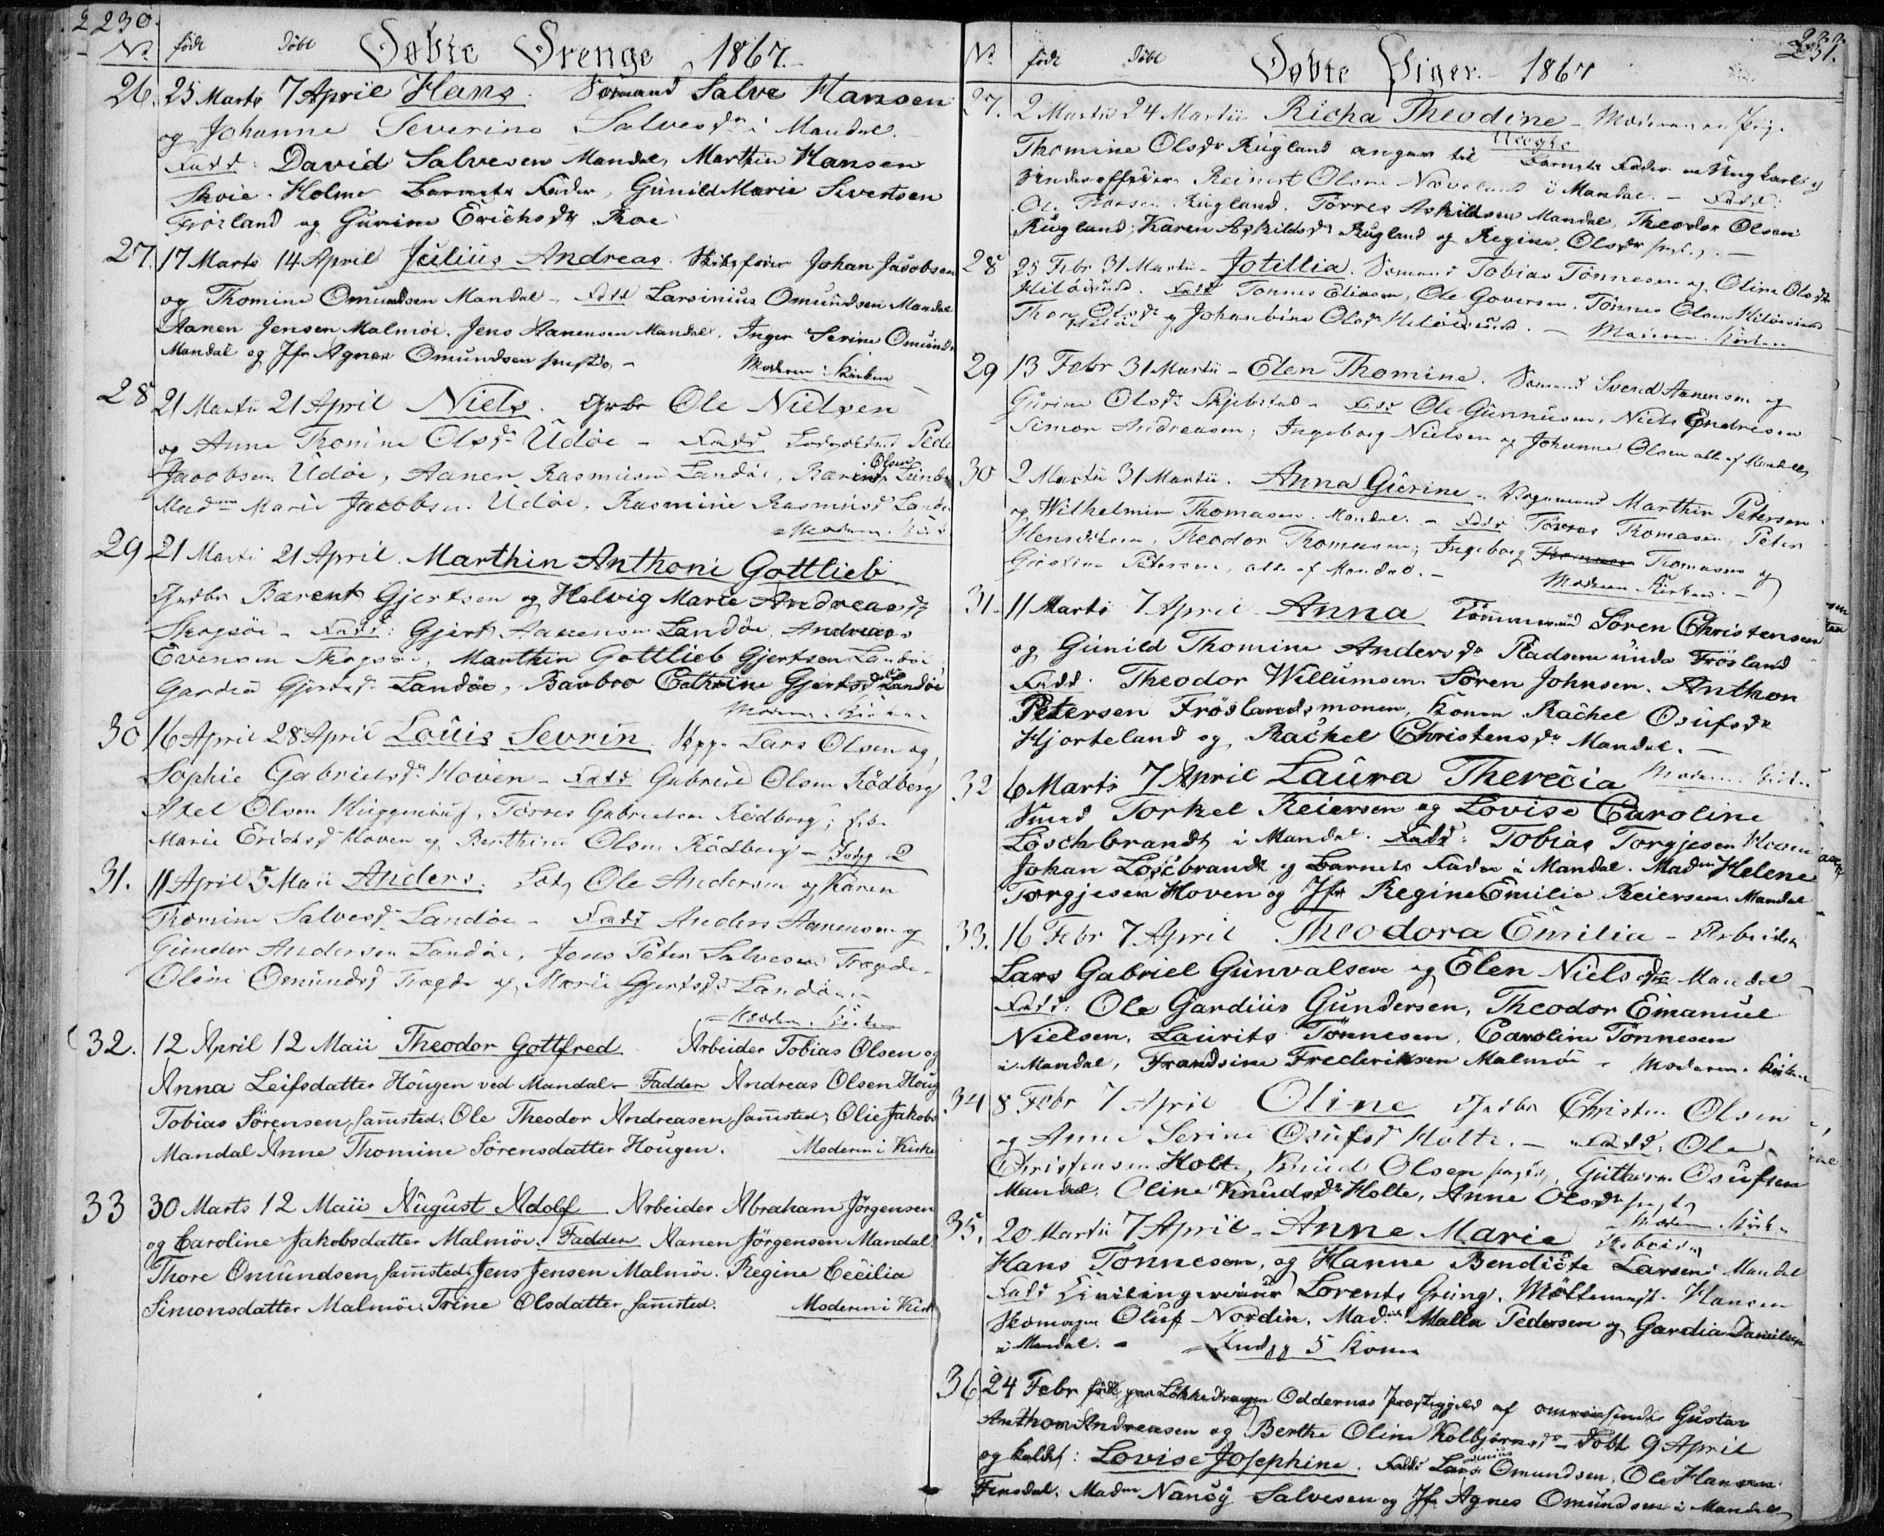 230.
No født Døbt Døbte Drenge 1867.
26. 25 Marts 7 April Hans. Sømand Salve Hansen
og Johanne Severine Salvesdr i Mandal.
Fadd: David Salvesen Mandal, Marthin Hansen
Holme Barnets Fader, Gunild Marie Sivertsen
Frøsland og Gurine Erichsdr Roe
27. 17 Marts 14 April Julius Andreas. Skibsfører Johan Jacobsen
og Thomine Omundsen Mandal - Fadd Larsinius Omundsen Mandal
Aanen Jensen Malmøe, Jens Aanensen Mandal, Inger Serine Omunds
Mandal og Jfr Agnes Omundsen
Moderen i Kirken
28 21 Martii 21 April Niels. Grbr Ole Nielsen
og Anne Tomine Olsdr Udøe - Fadd Pede
Jacobsen Udøe, Aanen Rasmussen Landøe, Barent Olsen
Madme Marie Jacobsen Udøe, Rasmine Rasmusd Landø
Moderen i Kirk
29 21 Marti 21 April. Marthin Anthoni Gottlieb
Grdbr Barent Gjertsen og Helvig Marie Andreasdr
Skogsøe - Fadd: Gjert Aanensen Landøe, Andreas
Evensen Skogsøe, Marthin Gottlieb Gjertsen Landøe,
Gardea Gjertsdr Landøe, Barbro Cathrine Gjertsdr Landøe
Moderen i Kirken
30 16 April 28 April Louis Sevrin Lars Olsen og
Sophie Gabrielsdr Hoven - Fadd Gabriel Olsen Rødberg
Axel Olsen Tørres Gabrielsen Rødberg,
Marie Ericksd Hoven og Berthine Olsen Rødberg - Indg 2
31. 11 April 5 Maii Anders. Lods Ole Andersen og Karen
Tomine Salvesdr Landøe - Fadd Anders Aanensen og
Gunder Andersen Landøe, Jens Peter Salvesen Trægde
Oline Omundsd Trægde og Marie Gjertsdr Landøe -
Moderen i Kirken
32. 12 April 12 Maii Theodor Gottfred Arbeider Tobias Olsen og
Anna Leifsdatter Hougen ved Mandal - Faddere Andreas Olsen Houg
Tobias Sørensen samsted, Ole Theodor Andreasen samsted, Olie Jakobs
Mandal Anne Thomine Sørensdatter Hougen. Moderen i Kirke
33 30 Marts 12 Maii August Adolf Arbeider Abraham Jørgensen
og Caroline Jakobsdatter Malmøe. Faddere Aanen Jørgensen Mandal
Thore Omundsen samsted, Jens Jensen Malmøe. Regine Cecilia
Simonsdatter Malmøe, Trine Olsdatter samsted. Moderen i Kirk
231.
No født Døbt Døbte Piger - 1867
27. 2 Martii 24 Martii Richa Theodine - Moderen er Pige
Thomine Olsdr Rugland angiver til Uægte Barnets Fader er Ungkarl og
Underofficer Reinert Olsen i Mandal. - Fadd:
Ole Rugland, Torres Askildsen Mandal, Theodor Olsen
Rugland, Karen Askildsdr Rugland og Regine Olsdr
28 25 Febr 31 Martii - Jotillia. Sømand Tobias Tønnesen og Oline Olsdr
Hiløisund. Fadd Tønnes Eliasen, Ole Goversen, Tønnes Olsen Hiløisund
Olsdr og Johanbine Olsdr Hiløisund. - Moderen i Kirken
29 13 Febr 31 Martii - Elen Thomine. Sømand Svend Aanensen og
Gurine Olsdr Skjebstad - Fadd Ole Gunnusen, Niels Endresen
Simon Andreasen, Ingeborg Nielsen og Johanne Olsen alle af Mandal
30 2 Martii 31 Martii. Anna Gurine - Vognmand Marthin Petersen
og Wilhelmine Thomasen Mandal. - Fadd Tørres Thomasen, Peter
Theodor Thomasen, Ingeborg Thomasen og
Petersen, alle af Mandal. -
Moderen i Kirken. -
31. 11 Marts 7 April - Anna Tømmermd Søren Christensen
og Gunild Thomine Andersdr Pladsen under Frøsland
Fadd. Theodor Willumsen, Søren Johnsen, Anthon
Petersen Frøslandsmonen, Konen Rachel Osufsdr
Hjorteland og Rachel Christensdr Mandal. -
Moderen i Kirken
32 6 Marts 7 April Laura Therecia
Smed Torkel Reiersen og Lovise Caroline
Loschbrandt i Mandal. Fadd: Tobias Torgjesen Hoven
Johan Loschbrandt og Barnets Fader i Mandal. Madm Helene
Torgjesen Hoven og Jfr Regine Emilie Reiersen Mandal
33. 16 Febr 7 April Theodora Emilia - Arbeider
Lars Gabriel Gunvalsen og Elen Nielsdr Mandal -
Fadd. Ole Gardius Gundersen, Theodor Emanuel
Nielsen, Laurits Tønnesen, Caroline Tønnesen
i Mandal, Frandsine Frederiksen Malmøe - Moderen i Kirken
34 8 Febr 7 April Oline Grdbr Christen Olsen
og Anne Serine Osufsd Holte. - Fadd. Ole
Christensen Holte, Knud Olsen Guttorm Osufsen
Mandal, Oline Knudsdr Holte, Anne Olsdr
Moderen i Kirken
35. 20 Martii 7 April - Anne Marie Arbeider
Hans Tønnesen, og Hanne Bendicte Larsen Mandal
Fadd Lorents Grüng, Hansen
Skomager Oluf Nordin, Madme Malla Pedersen og Gardia Danielsen
i Mandal. - Indgg 5 Konen
36 24 Febr født paa Løkkedrangen Oddernes Præstegjeld af omreisende Gustav
Anthon Andreasen og Berthe Oline Kolbjørnsdr - Døbt 9 April
og kaldet: Lovise Josephine. Fadd Larsinius Omundsen, Ole Hansen
Finsdal, Madm Nancy Salvesen og Jfr Agnes Omundsen i Mandal